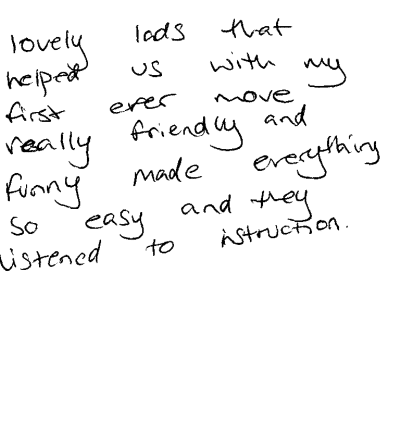 lovely lads that
helped us with my
first ever move
really friendly and
funny made everything
so easy and they
listened to istruction.